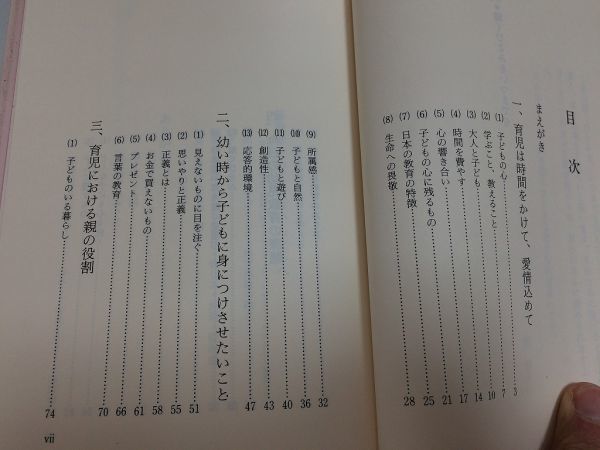 目次
まえがき
一、育児は時間をかけて、愛情込めて
(1) 子どもの心 3
(2) 学ぶこと、教えること 7
(3) 大人と子ども 10
(4) 時間を費やす 14
(5) 心の響き合い 17
(6) 子どもの心に残るもの 21
(7) 日本の教育の特徴 25
(8) 生命への畏敬 28
(9) 所属感 32
(10) 子どもと自然 36
(11) 子どもと遊び 40
(12) 創造性 43
(13) 応答的環境 47
二、幼い時から子どもに身につけさせたいこと
(1) 見えないものに目を注ぐ 51
(2) 思いやりと正義 55
(3) 正義とは 58
(4) お金で買えないもの 61
(5) プレゼント 66
(6) 言葉の教育 70
三、育児における親の役割
(1) 子どものいる暮らし 74
vii